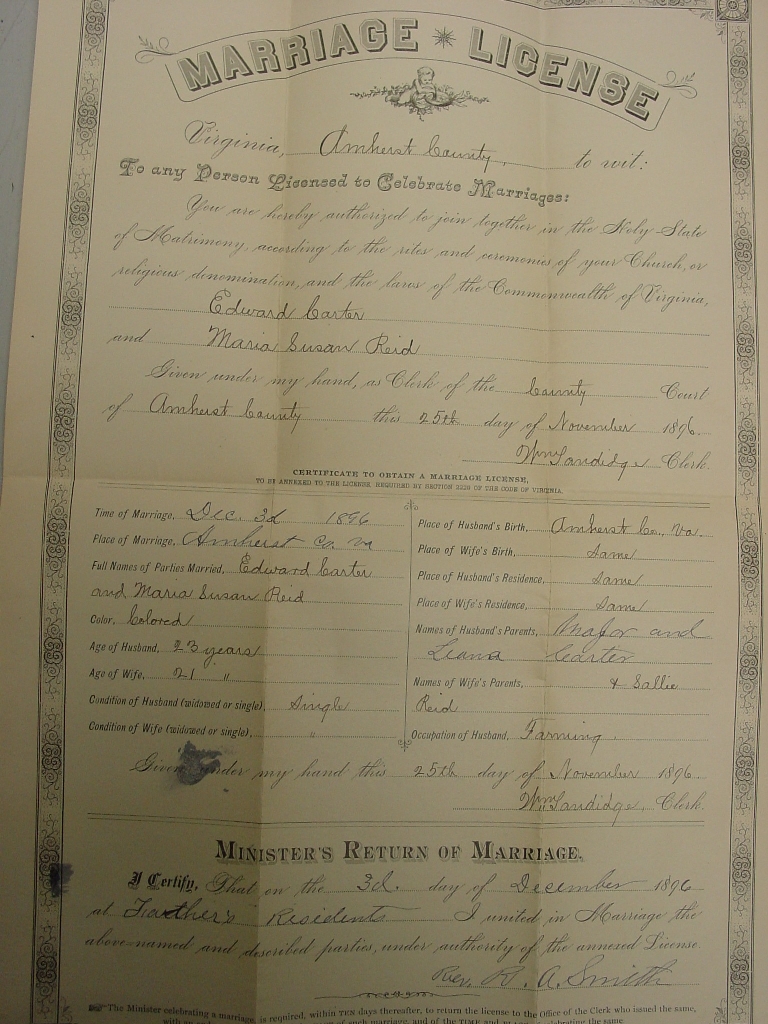 MARRIAGE LICENSE
Virginia, Amherst County, to wit:
To any Person Licensed to Celebrate Marriages:
You are hereby authorized to join together in the Holy State
of Matrimony, according to the rites and ceremonies of your Church, or
religious denomination, and the laws of the Commonwealth of Virginia,
Edward Carter
and Maria Susan Reid
Given under my hand, as Clerk of the County Court
of Amherst County this 25th day of November 1896.
Wm Sandidge Clerk.
CERTIFICATE TO OBTAIN A MARRIAGE LICENSE,
TO BE ANNEXED TO THE LICENSE, REQUIRED BY SECTION 2229 OF THE CODE OF VIRGINIA.
Time of Marriage, Dec. 3d 1896
Place of Marriage, Amherst Co. Va
Full Names of Parties Married, Edward Carter
and Maria Susan Reid
Color, Colored
Age of Husband, 23 years
Age of Wife, 21 "
Condition of Husband (widowed or single), Single
Condition of Wife (widowed or single), "
Place of Husband's Birth, Amherst Co., Va.
Place of Wife's Birth, Same
Place of Husband's Residence, Same
Place of Wife's Residence, Same
Names of Husband's Parents, Major and
Leana Carter
Names of Wife's Parents, & Sallie
Reid
Occupation of Husband, Farming.
Given under my hand this 25th day of November 1896.
Wm Sandidge, Clerk.
MINISTER'S RETURN OF MARRIAGE.
I Certify, That on the 3d. day of December 1896
at Farther's Residents I united in Marriage the
above-named and described parties, under authority of the annexed License.
Rev. R. A. Smith
The Minister celebrating a marriage, is required, within TEN days thereafter, to return the license to the Office of the Clerk who issued the same,
of such marriage, and of the TIME and